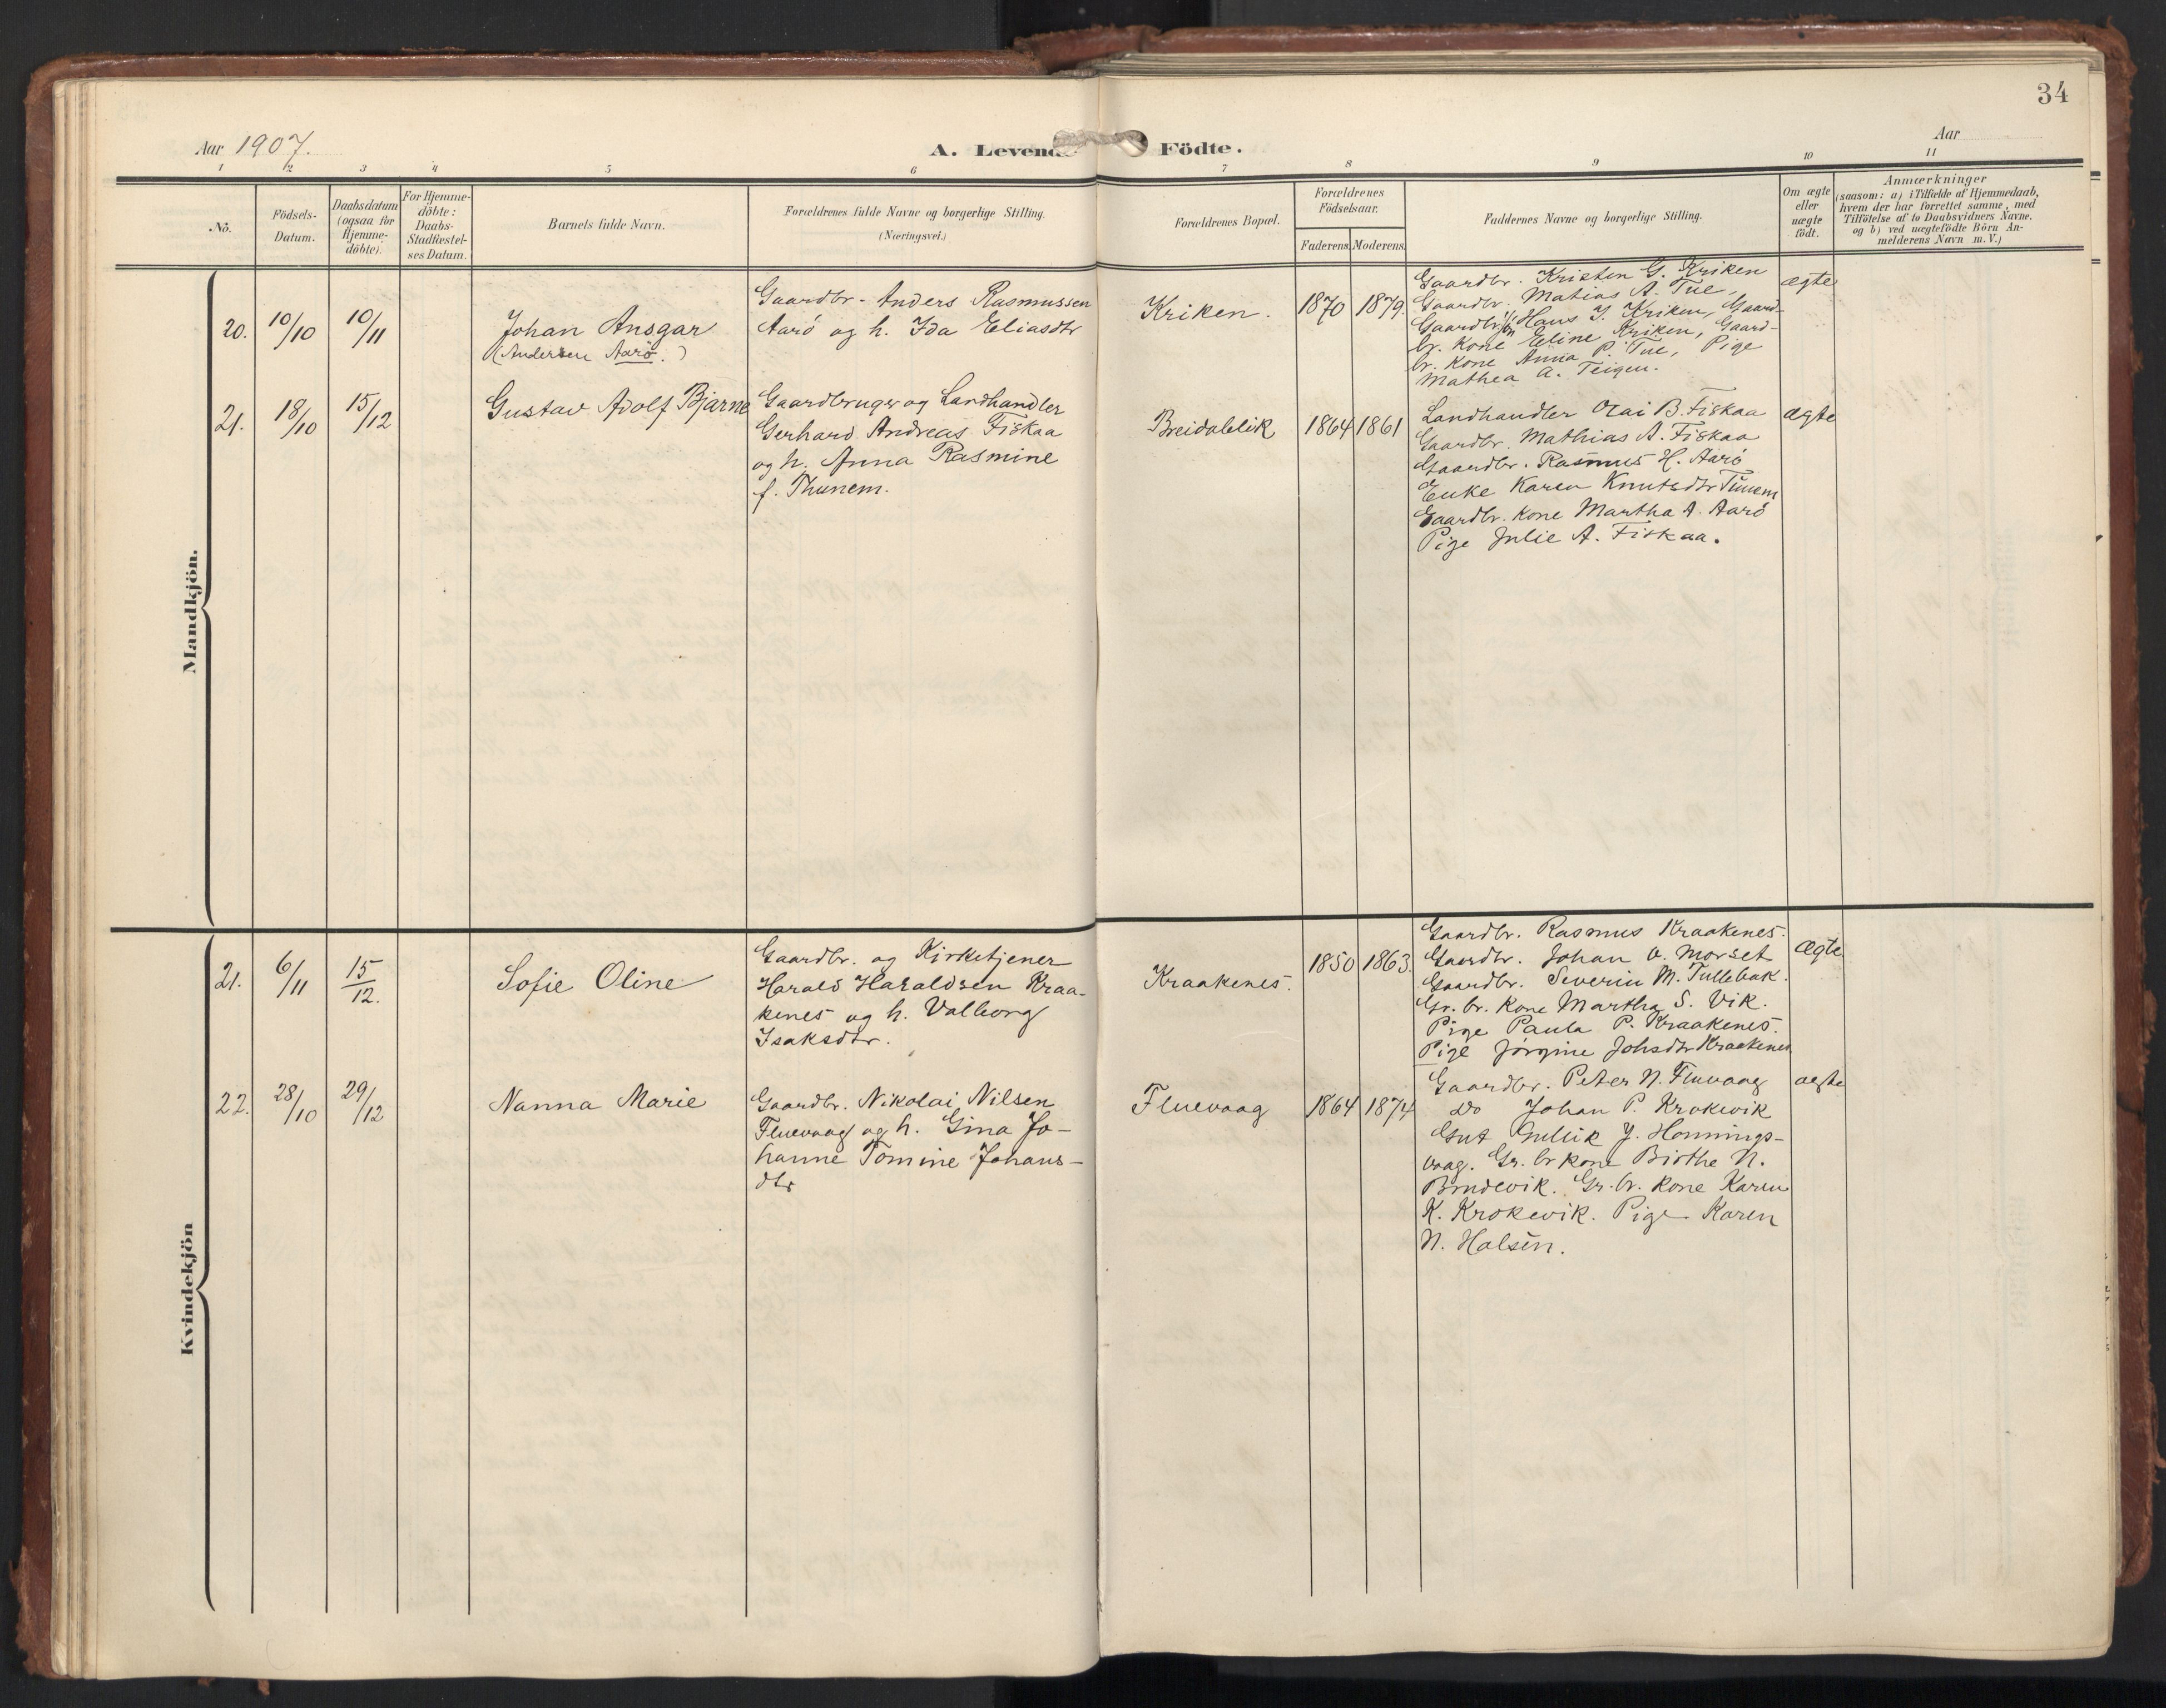 34
Aar 1907.
A. Levende Födte.
Aar
1 2 3 4 5 6 7 8 9 10 11
Nö.
Födsels-
Datum.
Daabsdatum
(ogsaa for
Hjemme-
döbte).
For Hjemme-
döbte:
Daabs-
Stadfæstel-
ses Datum.
Barnets fulde Navn.
Forældrenes fulde Navne og borgerlige Stilling.
(Næringsvei.)
Forældrenes Bopæl.
Forældrenes
Födselsaar.
Faderens. Moderens.
Faddernes Navne og borgerlige Stilling.
Om ægte
eller
uægte
födt.
Anmærkninger
(saasom: a) i Tilfælde af Hjemmedaab,
hvem der har forrettet samme, med
Tilföielse af to Daabsvidners Navne,
og b) ved uægtefödte Börn An-
melderens Navn m. V.)
Mandkjön.
20.
10/10
10/11
Johan Ansgar
(Andersen Aarö.)
Gaardbr. Anders Rasmussen
Aarö og h. Ida Eliasdtr
Kriken.
1870
1879.
Gaardbr. Kristen G. Kriken
Gaardbr. Matias A. Tue,
Gaardbr. Hans J. Kriken, Gaard-
br. Kone Eline Kriken, Gaard-
br. Kone Anna P. Tue, Pige
Mathea A. Teigen.
ægte
21.
18/10
15/12
Gustav Adolf Bjarne
Gaardbruger og Landhandler
Gerhard Andreas Fiskaa
og h. Anna Rasmine
f. Thunem.
Breidablik
1864
1861
Landhandler Olai B. Fiskaa
Gaardbr. Mathias A. Fiskaa
Gaardbr. Rasmus H. Aarö
Enke Karen Knutsdtr Tunem
Gaardbr. Kone Martha A. Aarö
Pige Julie A. Fiskaa.
ægte
Kvindekjön
21.
6/11
15/12.
Sofie Oline
Gaardbr. og Kirketjener
Harald Haraldsen Kraa-
kenes og h. Valborg
Isaksdtr.
Kraakenes.
1850
1863.
Gaardbr. Rasmus Kraakenes.
Gaardbr. Johan A. Morset
Gaardbr. Severin M. Tullebak.
Gr. br. Kone Martha S. Vik.
Pige Paula P. Kraakenes.
Pige Jörgine Johsdtr Kraakenes
ægte
22.
28/10
29/12
Nanna Marie
Gaardbr. Nikolai Nilsen
Fluevaag og h. Gina Jo-
hanne Tomine Johans-
dtr
Fluevaag
1864
1874
Gaardbr. Peter N. Fluevaag
Do Johan P. Krokevik
Gut Gullik J. Honnings-
vaag. Gr. br kone Birthe N.
Brudevik. Gr. br. Kone Karen
K. Krokevik. Pige Karen
N. Halsen.
ægte